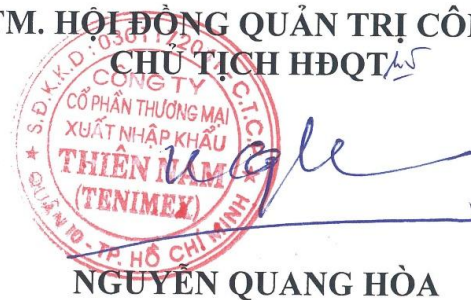 TM. HỘI ĐỒNG QUẢN TRỊ
CHỦ TỊCH HĐQT
CÔNG TY
CỔ PHẦN THƯƠNG MẠI
XUẤT NHẬP KHẨU
THIÊN NAM
(TENIMEX)
QUẬN 10 - TP. HỒ CHÍ MINH
NGUYỄN QUANG HÒA